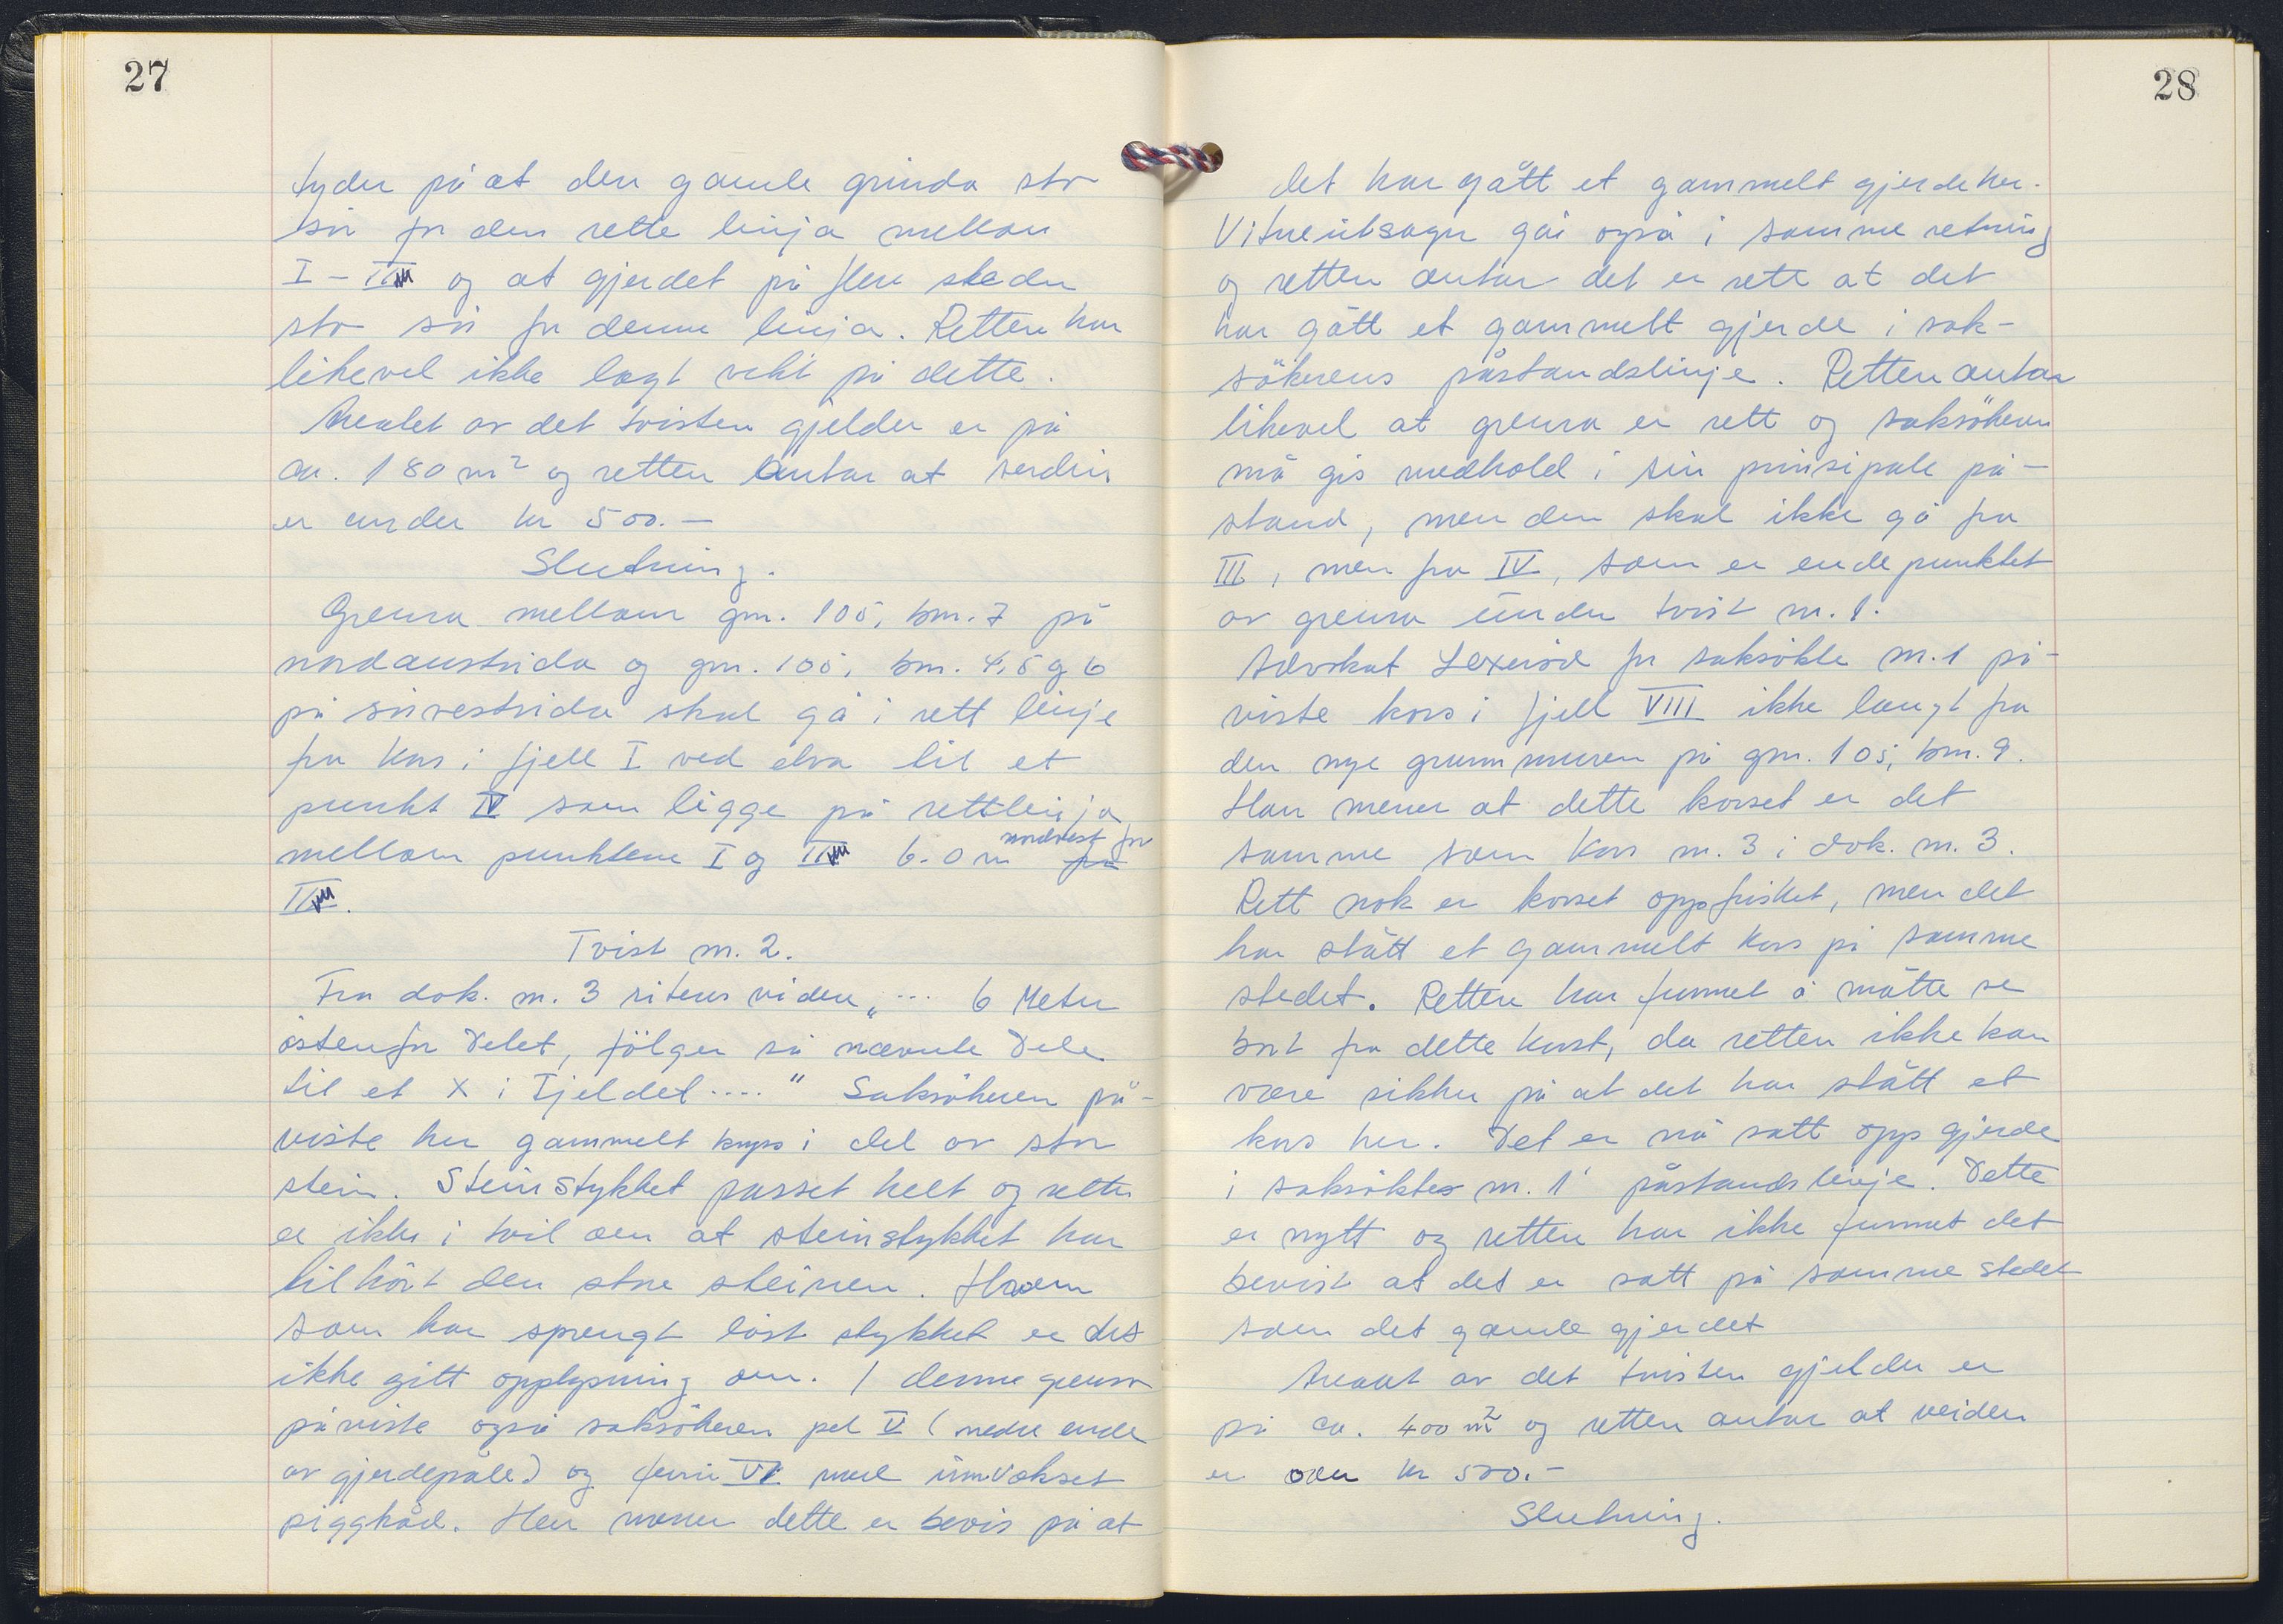 27
tyder på at den gamle grinda sto
sör for den rette linja mellom
I - III og at gjerdet på flere steder
sto sör for denne linja. Retten har
likevel ikke lagt vekt på dette.
Arealet av det tvisten gjelder er på
ca. 180 m² og retten antar at verdien
er under kr 500.-
Slutning.
Grensa mellom gnr. 105, bnr. 7 på
nordaustsida og gnr. 105, bnr. 4, 5 og 6
på sörvestsida skal gå i rett linje
fra kors i fjell I ved elva til et
punkt IV som ligge på rettlinja
mellom punktene I og III 6.0 m nordvest for
III.
Tvist nr. 2.
Fra dok. nr. 3 siteres videre „... 6 Meter
östenfor Delet, fölger så nævnte Dele
til et X i Fjeldet...." Saksökeren på-
viste her gammelt kryss i del av stor
stein. Steinstykket passet helt og retten
er ikke i tvil om at steinstykket har
tilhört den store steinen. Hvem
som har sprengt löst stykket er det
ikke gitt opplysning om. I denne grensa
påviste også saksökeren pel V (nedre ende
av gjerdepåle) og furu VI med innvokset
piggtråd. Han mener dette er bevis på at
28
det har gått et gammelt gjerde her.
Vitneutsagn går også i samme retning
og retten antar det er rett at det
har gått et gammelt gjerde i sak-
sökerens påstandslinje. Retten antar
likevel at grensa er rett og saksökeren
må gis medhold i sin prinsipale på-
stand, men den skal ikke gå fra
III, men fra IV, som er endepunktet
av grensa under tvist nr. 1.
Advokat for saksökte nr. 1 på-
viste kors i fjell VIII ikke langt fra
den nye grunnmuren på gnr. 105, bnr. 9.
Han mener at dette korset er det
samme som kors nr. 3 i dok. nr. 3.
Rett nok er korset oppfrisket, men det
har stått et gammelt kors på samme
stedet. Retten har funnet å måtte se
bort fra dette korset, da retten ikke kan
være sikker på at det har stått et
kors her. Det er nå satt opp gjerde
i saksöktes nr. 1 påstandslinje. Dette
er nytt og retten har ikke funnet det
bevist at det er satt på samme stedet
som det gamle gjerdet
Arealet av det tvisten gjelder er
på ca. 400 m² og retten antar at verdien
er over kr 500.-
Slutning.